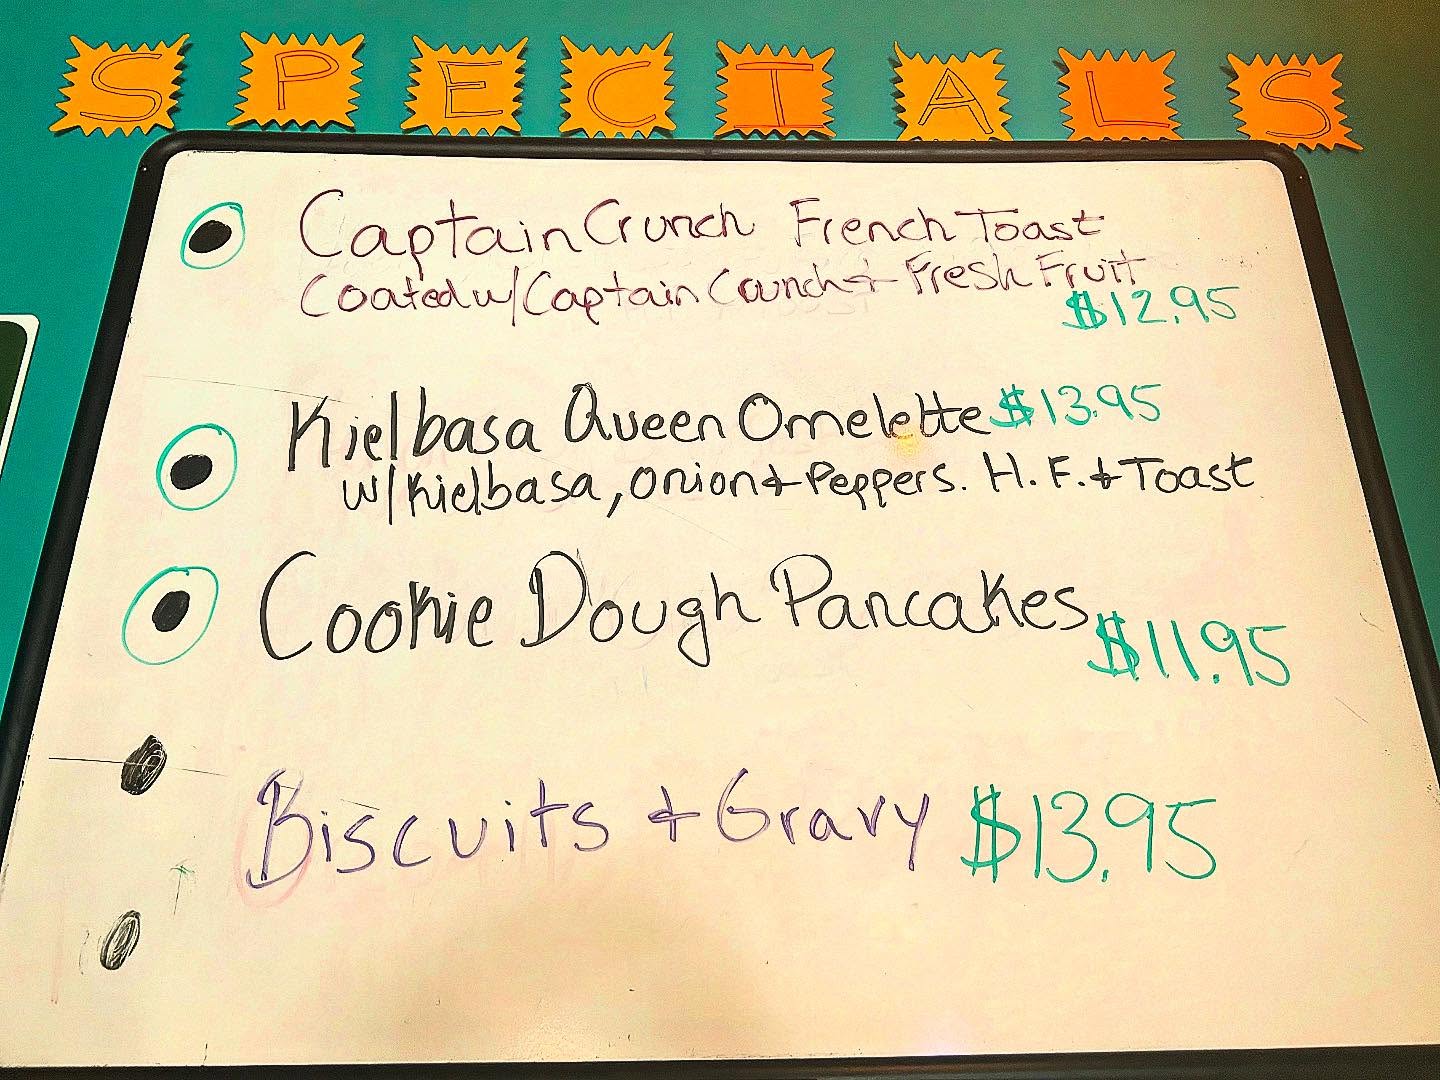 SPECIALS
Captain Crunch French Toast
Coated w/ Captain Crunch + Fresh Fruit
$12.95
Kielbasa Queen Omelette $13.95
w/ Kielbasa, Onion + Peppers. H.F. + Toast
Cookie Dough Pancakes
$11.95
Biscuits + Gravy $13.95